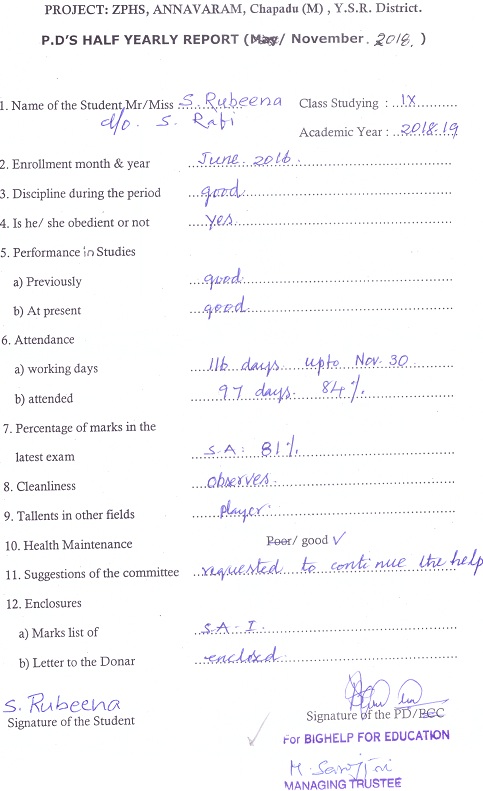 PROJECT: ZPHS, ANNAVARAM, Chapadu (M) , Y.S.R. District.
P.D'S HALF YEARLY REPORT (May/ November. 2018. )
1. Name of the Student Mr/Miss : S. Rubeena Class Studying : IX
d/o. S. Rafi
Academic Year : 2018-19
2. Enrollment month & year June 2016.
3. Discipline during the period good
4. Is he/ she obedient or not yes
5. Performance in Studies
a) Previously good
b) At present good
6. Attendance
a) working days 116 days upto Nov. 30
b) attended 97 days. 84%.
7. Percentage of marks in the
latest exam S.A: 81%
8. Cleanliness observes
9. Tallents in other fields player
10. Health Maintenance Poor/ good ✓
11. Suggestions of the committee requested to continue the help
12. Enclosures
a) Marks list of S.A - I
b) Letter to the Donar enclosed
S. Rubeena
Signature of the Student
Signature of the PD/ECC
For BIGHELP FOR EDUCATION
MANAGING TRUSTEE